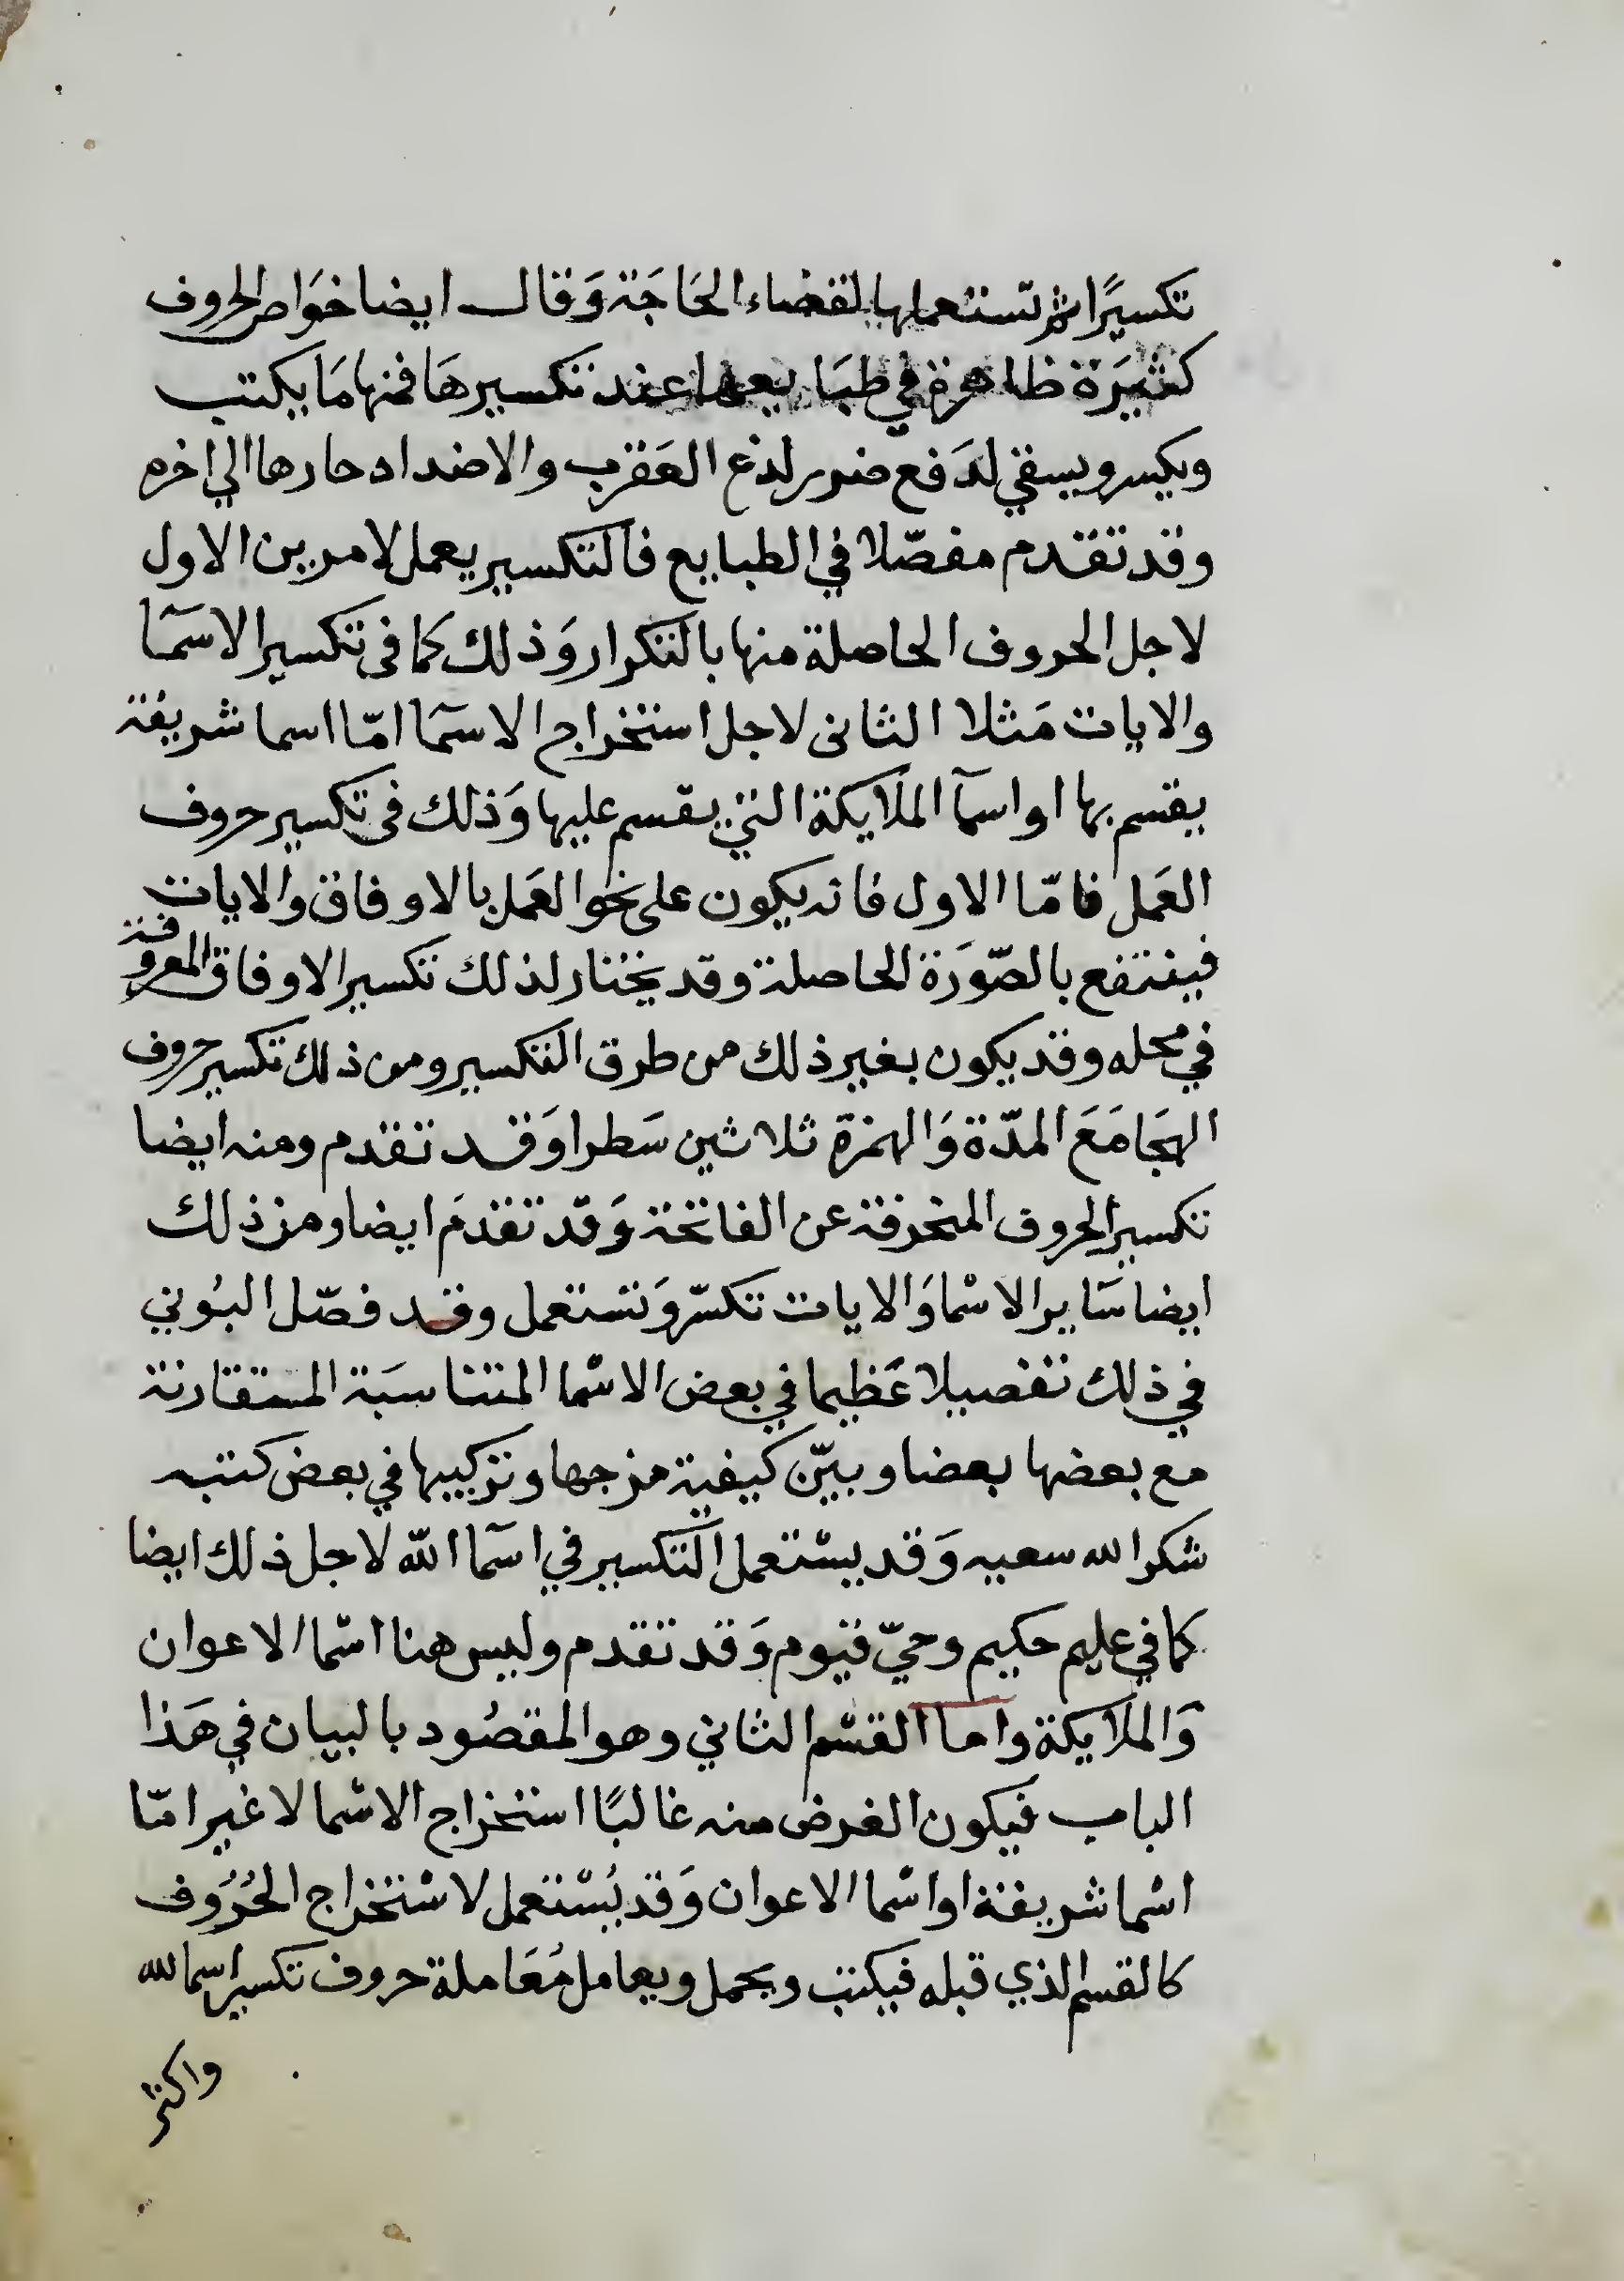 تكسيرًا ثم تستعملها لقضاء الحَاجَة وَقال ايضا خوَاص الحروف
كثيرَة ظاهرة في طبَايعها عند تكسيرهَا فمنها مَا يكتب
ويكسر ويسقي لدَفع ضرر لدغ العَقرب والاضداد حارها الي اخره
وقد تقدم مفصّلا في الطبايع فالتكسير يعمل لامرين الاول
لاجل الحروف الحاصلة منها بالتكرار وَذلك كما فى تكسير الاسمآ
والايات مَثلا الثانى لاجل استخراج الاسمآ امّا اسما شريفة
يقسم بها او اسمآ الملَايكة التي يقسم عليها وَذلك فى تكسير حروف
العَمل فامّا الاول فانه يكون على نحو العَمل بالاوفاق والايات
فينتفع بالصّورَة الحاصلة وقد يختار لذلك تكسير الاوفاق المعروفة
في محله وقد يكون بغير ذلك من طرق التكسير ومن ذلك تكسير حروف
الهجَا مَعَ المدّة وَالهمزة ثلاثين سَطرا وَقد تقدم ومنه ايضا
تكسير الحروف المنحرفة عن الفاتحة وَقد تقدمَ ايضا ومن ذلك
ايضا سَاير الاسْما وَالايات تكسّر وَتستعمل وقد فصّل البُوني
في ذلك تفصيلا عَظيما في بعض الاسْما المتناسبَة المتقارنة
مع بعضها بعضا وبيّن كيفية مزجها وتركيبها في بعض كتبه
شكر الله سعيه وَقد يسْتعمل التكسير في اسمآ الله لاجل ذلك ايضا
كما في عليم حكيم وحيّ قيوم وَقد تقدم وليس هنا اسْما الاعوان
وَالملَايكة واما القسْم الثاني وهو المقصُود بالبيان في هَذا
الباب فيكون الغرض منه غالبًا استخراج الاسْما لا غير امّا
اسْما شريفة او اسْما الاعوان وَقد يُسْتعمل لاسْتخراج الحُرُوف
كالقسم الذي قبله فيكتب ويحمل ويعامل مُعَاملة حروف تكسير اسما الله
واكثر